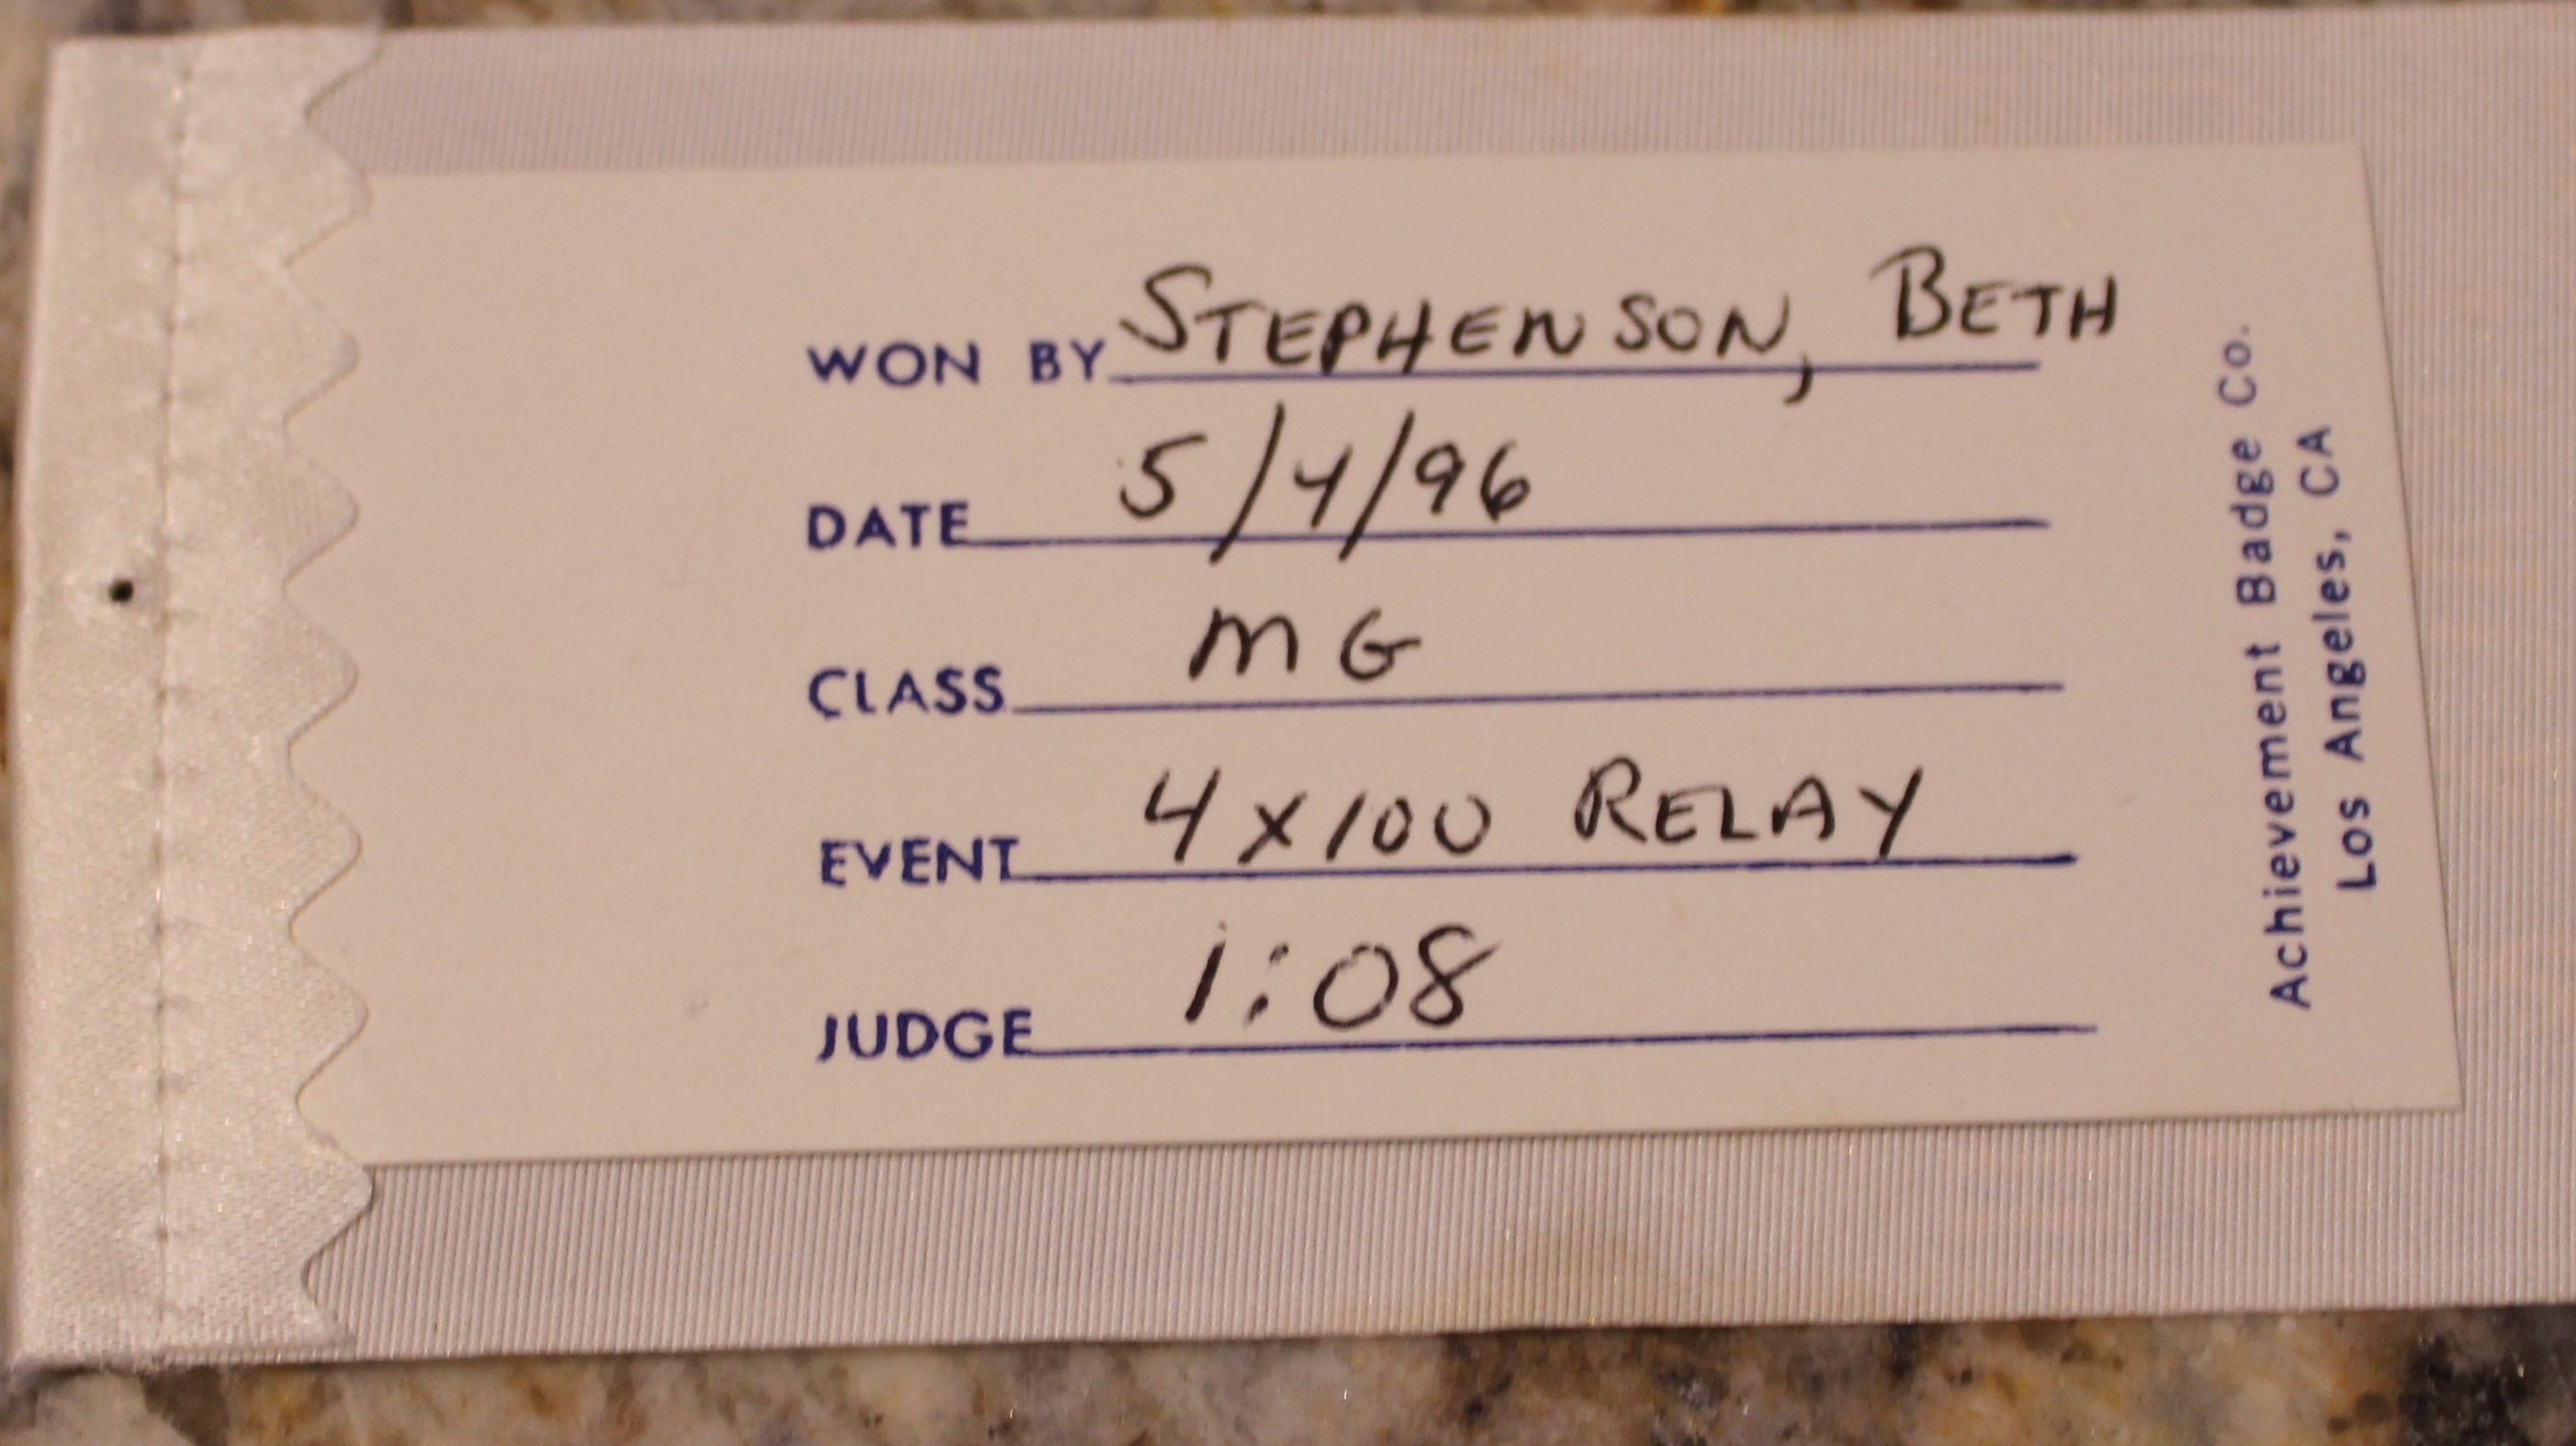 WON BY STEPHENSON, BETH
DATE 5/4/96
CLASS MG
EVENT 4X100 RELAY
JUDGE 1:08
Achievement Badge Co.
Los Angeles, CA